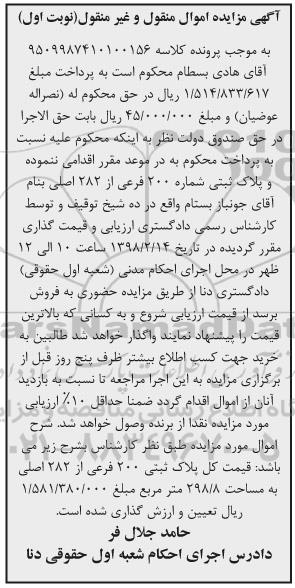 آگهی مزایده اموال منقول و غیر منقول(نوبت اول)
به موجب پرونده کلاسه ۹۵۰۹۹۸۷۴۱۰۱۰۰۱۵۶
آقای هادی بسطام محکوم است به پرداخت مبلغ
۱/۵۱۴/۸۳۳/۶۱۷ ریال در حق محکوم له (نصراله
عوضیان) و مبلغ ۴۵/۰۰۰/۰۰۰ ریال بابت حق الاجرا
در حق صندوق دولت نظر به اینکه محکوم علیه نسبت
به پرداخت محکوم به در موعد مقرر اقدامی ننموده
و پلاک ثبتی شماره ۲۰۰ فرعی از ۲۸۲ اصلی بنام
آقای جونباز بستام واقع در ده شیخ توقیف و توسط
کارشناس رسمی دادگستری ارزیابی و قیمت گذاری
مقرر گردیده در تاریخ ۱۳۹۸/۲/۱۴ ساعت ۱۰ الی ۱۲
ظهر در محل اجرای احکام مدنی (شعبه اول حقوقی)
دادگستری دنا از طریق مزایده حضوری به فروش
برسد از قیمت ارزیابی شروع و به کسانی که بالاترین
قیمت را پیشنهاد نمایند واگذار خواهد شد طالبین به
خرید جهت کسب اطلاع بیشتر ظرف پنج روز قبل از
برگزاری مزایده به این اجرا مراجعه تا نسبت به بازدید
آنان از اموال اقدام گردد ضمنا حداقل ۱۰٪ ارزیابی
مورد مزایده نقدا از برنده وصول خواهد شد. شرح
اموال مورد مزایده طبق نظر کارشناس بشرح زیر می
باشد: قیمت کل پلاک ثبتی ۲۰۰ فرعی از ۲۸۲ اصلی
به مساحت ۲۹۸/۸ متر مربع مبلغ ۱/۵۸۱/۳۸۰/۰۰۰
ریال تعیین و ارزش گذاری شده است.
حامد جلال فر
دادرس اجرای احکام شعبه اول حقوقی دنا